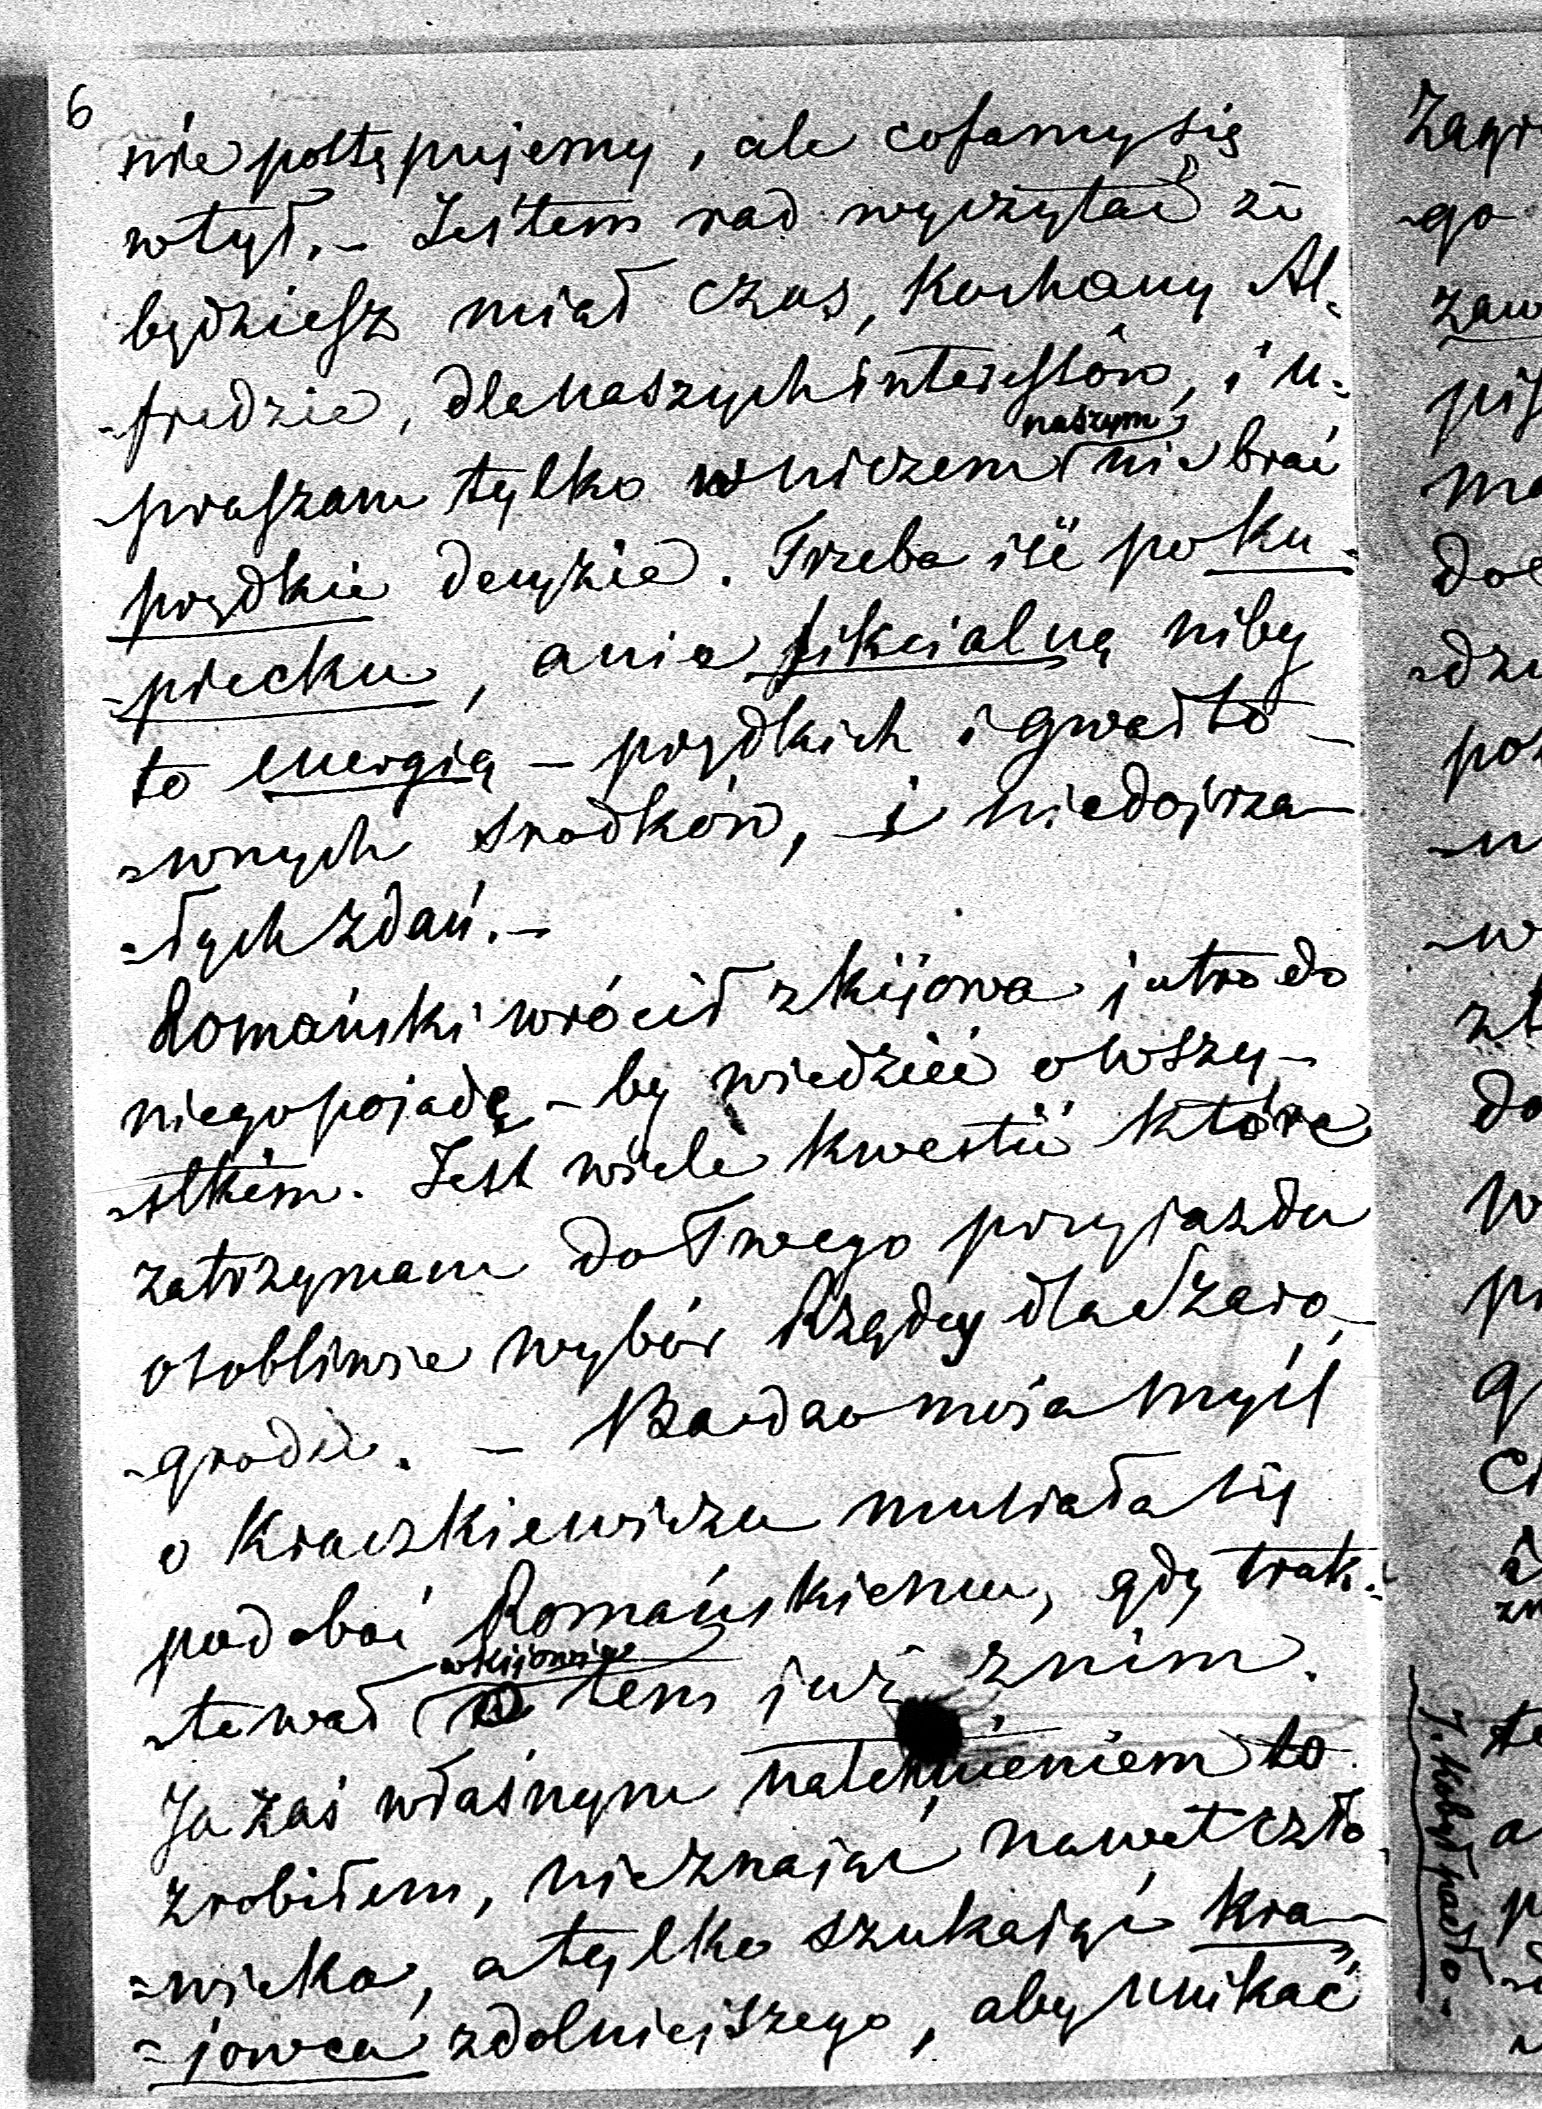 6
nie postępujemy, ale cofamy się
w tył. – Jestem rad wyczytać że
będziesz miał czas, kochany Al-
-fredzie, dla naszych interessów, i u-
naszym
-praszam tylko w niczem nie brać
prędkie decyzie. Trzeba iść po ku-
-piecku, a nie fikcialną niby
to energią – prędkich i gwałto-
-wnych srodków, i niedojrza-
-łych zdań. –
Romański wrócił z kijowa jutro do
niego pojadę – by wiedzieć o wszy-
-stkiem. Jest wiele kwestii które
zatrzymam do Twego przyjazdu
osobliwie wybór Rządcy dla Szaro-
-grodu. – Bardzo moja myśl
o Kraczkiewiczu musiała się
podobać Romańskiemu, gdy trak-
w kijowie
-tował o tem już z nim.
Ja zaś własnym natchnieniem to
zrobiłem, nieznając nawet czło-
-wieka, a tylko szukając kra-
-jowca zdolniejszego, aby unikać